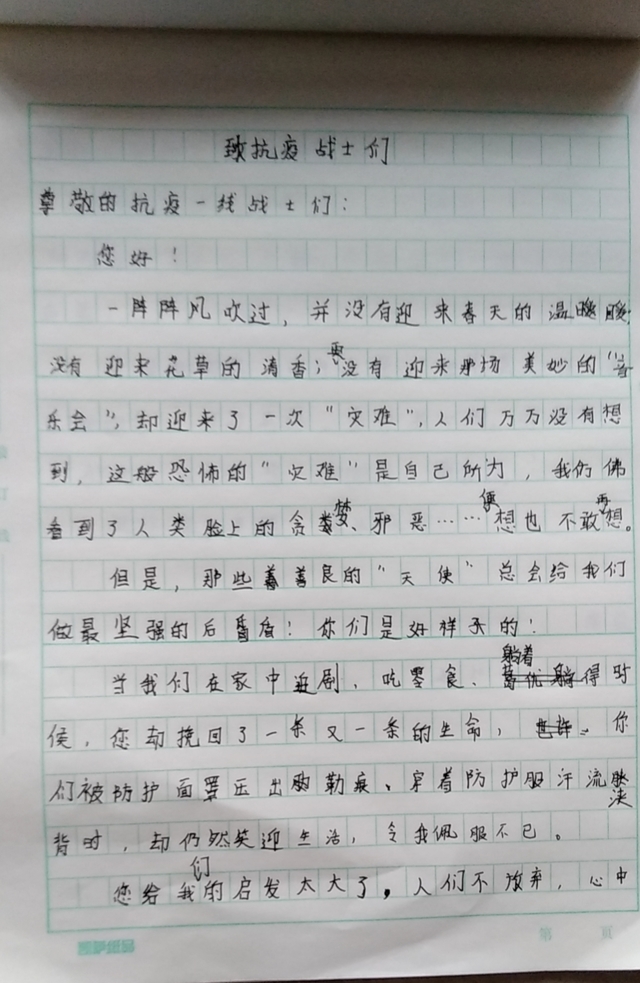 致抗疫战士们
尊敬的抗疫一线战士们：
您好！
一阵阵风吹过，并没有迎来春天的温暖，
没有迎来花草的清香；更没有迎来那场美妙的“音
乐会”，却迎来了一次“灾难”，人们万万没有想
到，这般恐怖的“灾难”是自己所为，我仿佛
看到了人类脸上的贪婪、邪恶……便想也不敢再想。
但是，那些善良的“天使”总会给我们
做最坚强的后盾！你们是好样子的！
当我们在家中追剧、吃零食、躺着得时
侯，您却挽回了一条又一条的生命，你
们被防护面罩压出勒痕、穿着防护服汗流浃
背时，却仍然笑迎生活，令我佩服不已。
您给我们的启发太大了，人们不放弃，心中
第 页